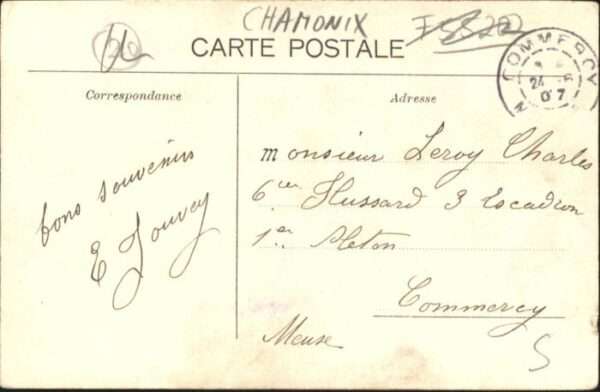 CHAMONIX
CARTE POSTALE
COMMERCY
24 -6
07
Correspondance
Adresse
bons souvenirs
E Jouvey
Monsieur Leroy Charles
6em Hussard 3 Escadron
1er Pleton
Commercy
Meuse